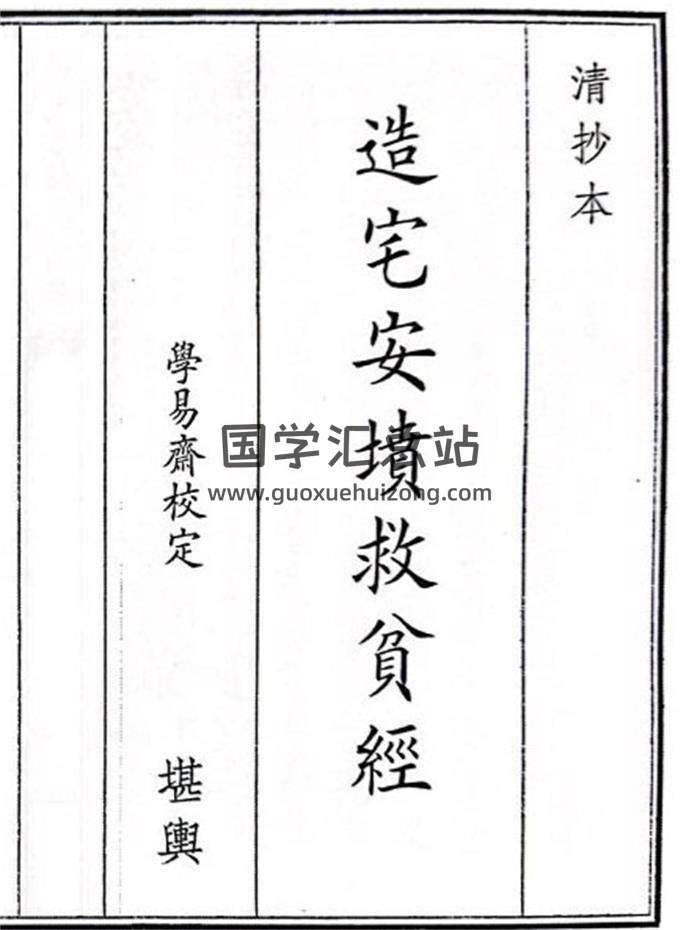 清抄本
造宅安墳救貧經
學易齋校定
堪輿
国学汇总站
www.guoxuehuizong.com